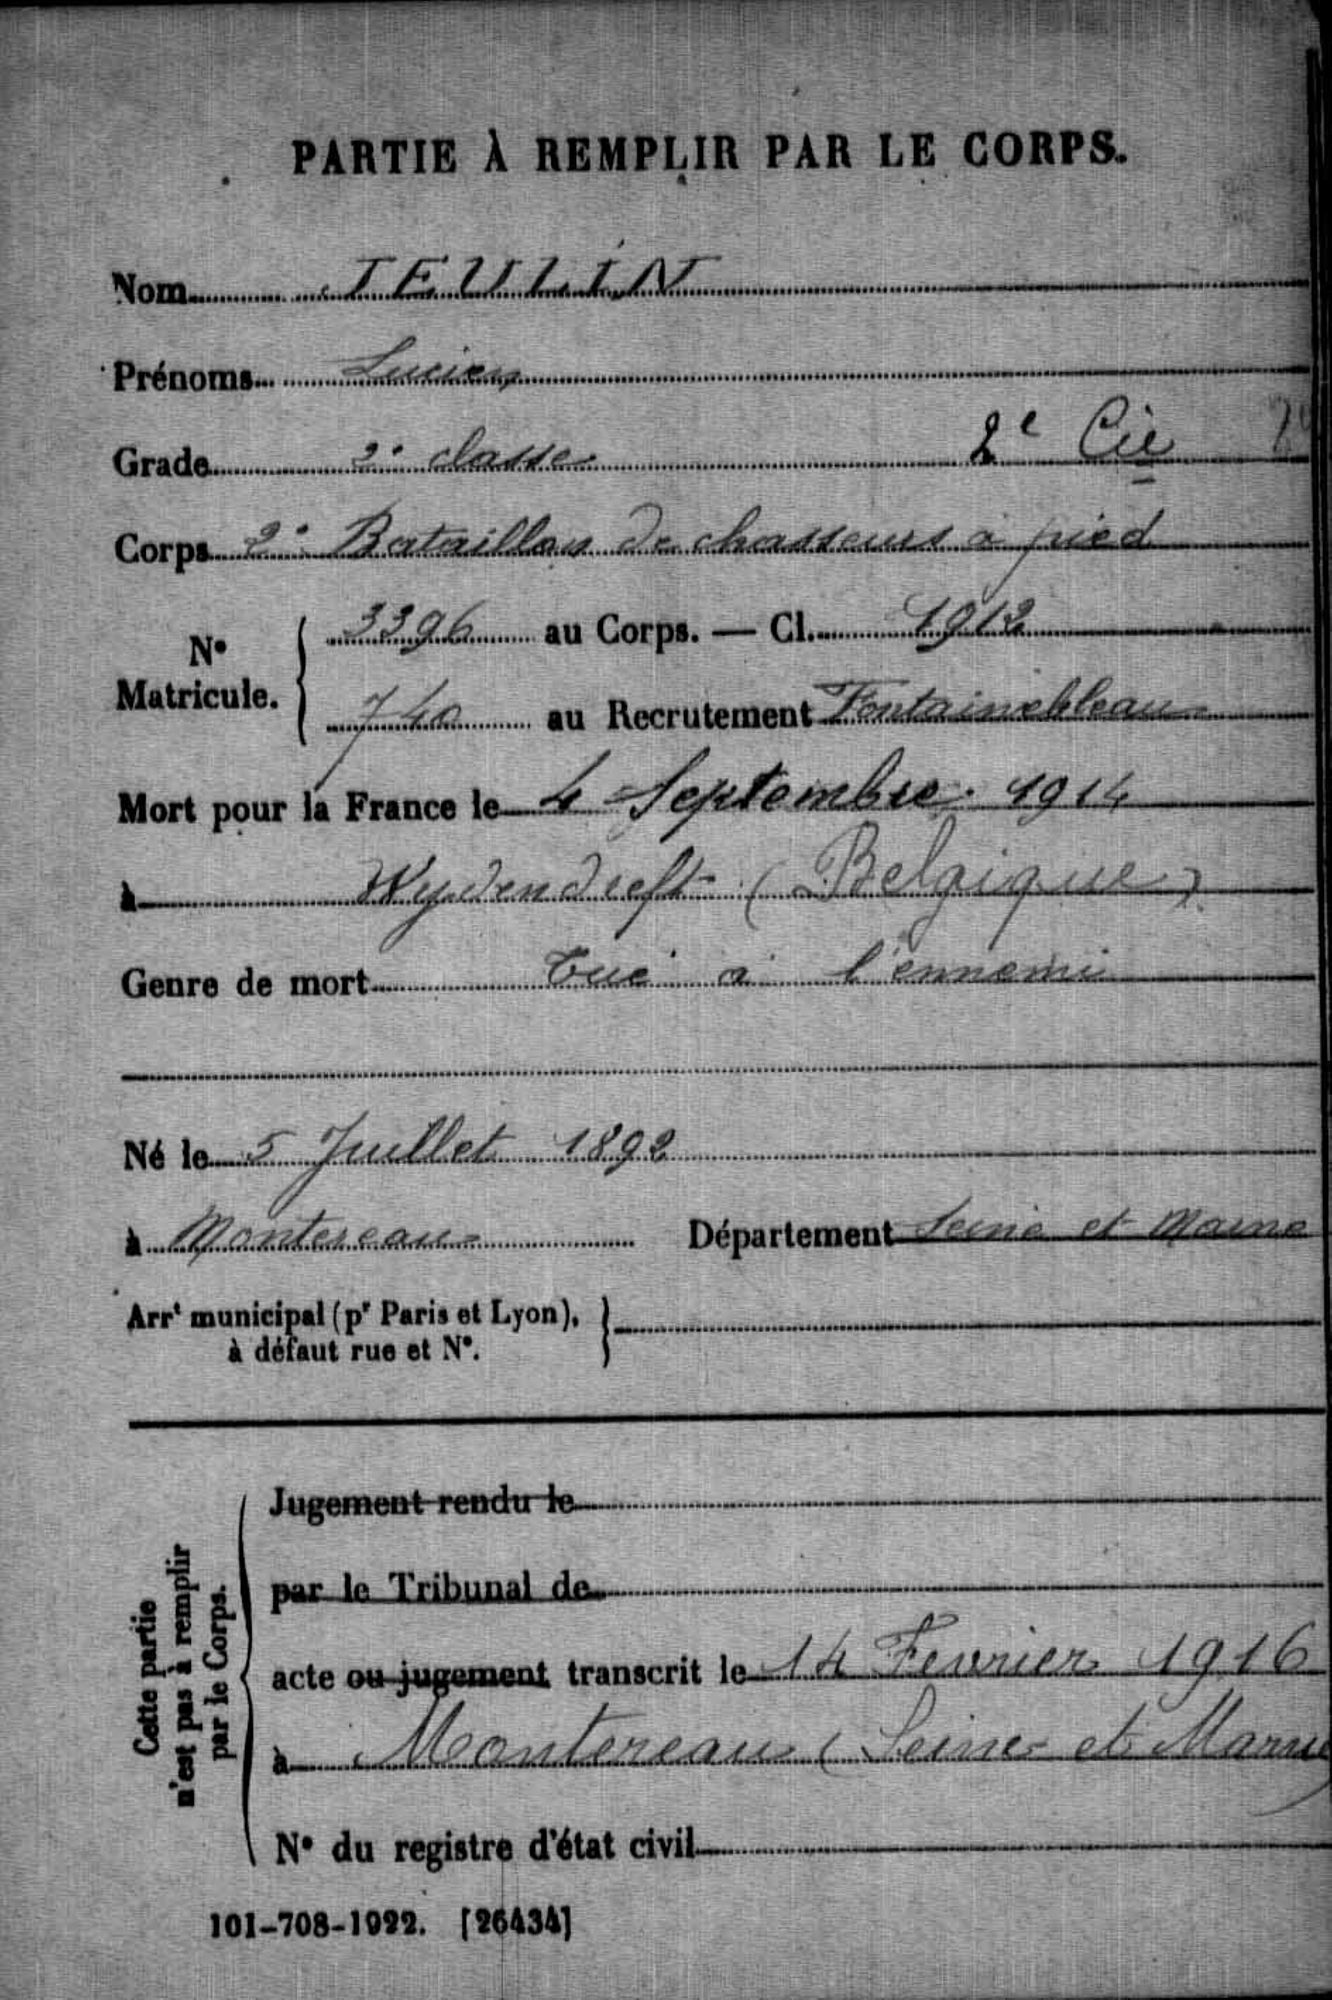 PARTIE À REMPLIR PAR LE CORPS.
Nom TEULIN
Prénoms Lucien
Grade 2e classe 2e Cie
Corps 2e Bataillon de chasseurs à pied
N° Matricule. 3396 au Corps. — Cl. 1912
740 au Recrutement Fontainebleau
Mort pour la France le 4 Septembre 1914
à Wydendreft (Belgique)
Genre de mort Tué à l'ennemi
Né le 5 Juillet 1892
à Montereau Département Seine et Marne
Arrt municipal (pr Paris et Lyon),
à défaut rue et N°.
Cette partie
n'est pas à remplir
par le Corps.
Jugement rendu le
par le Tribunal de
acte ou jugement transcrit le 14 Fevrier 1916
à Montereau (Seine et Marne)
N° du registre d'état civil
101-708-1922. [26434]